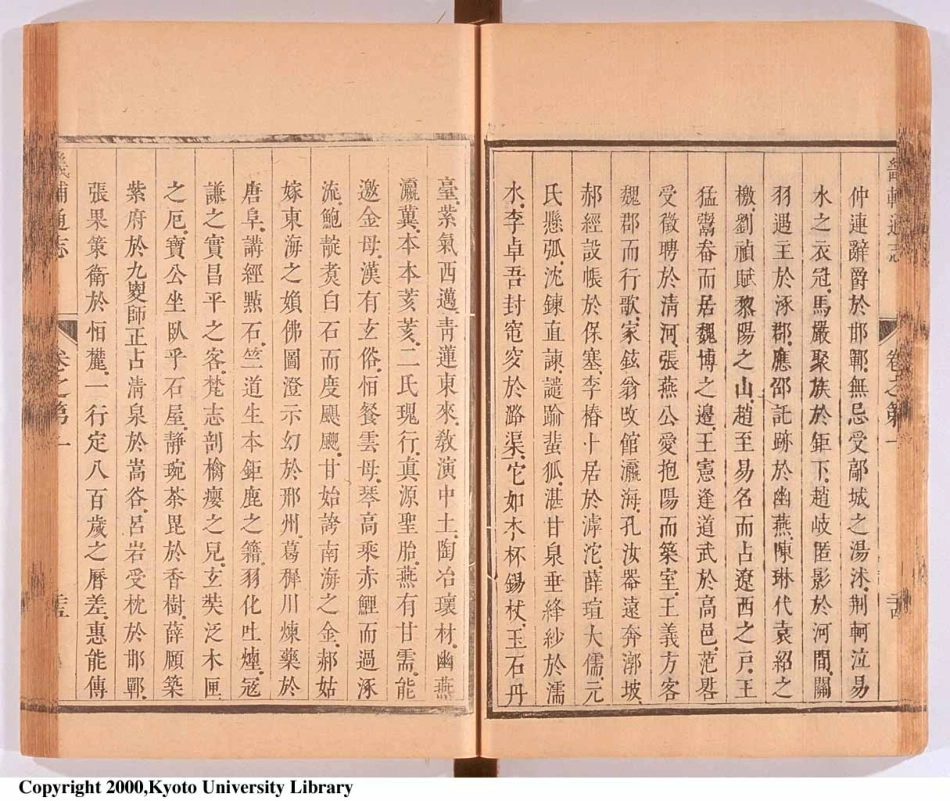 畿輔通志
卷之第一
仲連辭爵於邯鄲無忌受鄗城之湯沐荆軻泣易
水之衣冠馬嚴聚族於鉅下趙岐匿影於河間關
羽遇王於涿郡應邵託跡於幽燕陳琳代袁紹之
檄劉禎賦黎陽之山趙至易名而占遼西之戸王
猛鬻畚而居魏博之邊王憲逢道武於高邑范晷
受徵聘於清河張燕公愛抱陽而築室王義方客
魏郡而行歌家鉉翁攺館瀛海孔汝器遠奔漷坡
郝經設帳於保塞李椿卜居於滹沱薛瑄大儒元
氏懸弧沈鍊直諫譴踰蜚狐湛甘泉垂絳紗於濡
水李卓吾封窀穸於潞渠它如木杯錫杖玉石丹
臺紫氣西邁青蓮東來敎演中土陶冶瓌材幽燕
瀛冀本本荄荄二氏瑰行眞源聖胎燕有甘需能
邀金母漢有玄俗恒餐雲母琴高乘赤鯉而過涿
流鮑靚煑白石而度颶颶甘始誇南海之金郝姑
嫁東海之嬪佛圖澄示幻於邢州葛穉川煉藥於
唐阜講經點石竺道生本鉅鹿之籍羽化吐煙冦
謙之實昌平之客梵志剖檎癭之兒玄奘泛木匣
之厄寶公坐臥乎石屋靜琬茶毘於香樹薛願築
紫府於九嵕師正占清泉於嵩谷呂岩受枕於邯鄲
張果策衛於恒麓一行定八百歲之曆差惠能傳
畿輔通志
卷之第一